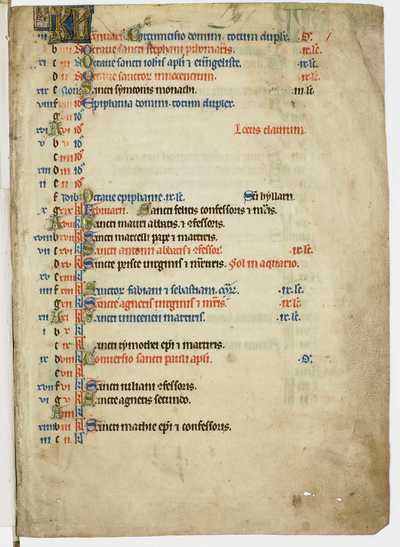 Januarii. Circumcisio domini. totum duplex. D.
b iiii N Octave sancti stephani prthomartis. ix. lc.
xi c iii N Octave sancti iohis apli et evangeliste. ix. lc.
d ii N Octave sanctor innocentium. ix. lc.
xix e Nonis Sancti symeonis monachi. iii. lc.
viii f viii id Epiphania domini. totum duplex.
g vii id
xvi A vi id Locus clavium.
v b v id
c iiii id
xiii d iii id
ii e ii id
f idib Octave epiphanie. ix. lc. Sci hyllarii.
x g xix kl Februarii. Sancti felicis confessoris & mris.
A xviii kl Sancti mauri abbatis. & cfessoris.
xviii b xvii kl Sancti marcelli pape & martiris.
vii c xvi kl Sancti antonii abbatis & cfessor. ix. lc.
d xv kl Sancte prisce virginis & martiris. Sol in aquario.
xv e xiiii kl
iiii f xiii kl Sanctor fabiani & sebastiani. ix. lc.
g xii kl Sancte agnetis virginis & mris. ix. lc.
xii A xi kl Sancti vincencii martiris. ix. lc.
i b x kl
c ix kl Sancti tymothei epi & martiris.
ix d viii kl Conversio sancti pauli apli. D.
e vii kl
xvii f vi kl Sancti iuliani cfessoris.
vi g v kl Sancte agnetis secundo.
A iiii kl
xiiii b iii kl Sancti mathie epi & confessoris.
iii c ii kl